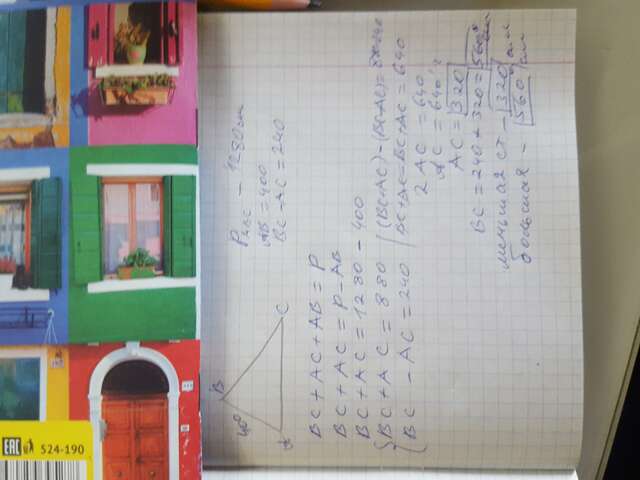 P ABC - 1280 см
AB = 400
BC - AC = 240
B
400
A
C
BC + AC + AB = P
BC + AC = P - AB
BC + AC = 1280 - 400
BC + AC = 880
BC - AC = 240
(BC+AC) - (BC-AC) = 880-240
BC + AC - BC + AC = 640
2 AC = 640
AC = 640:2
AC = 320
BC = 240 + 320 = 560
меньшая ст. - 320 см
большая - 560 см
EAC
524-190